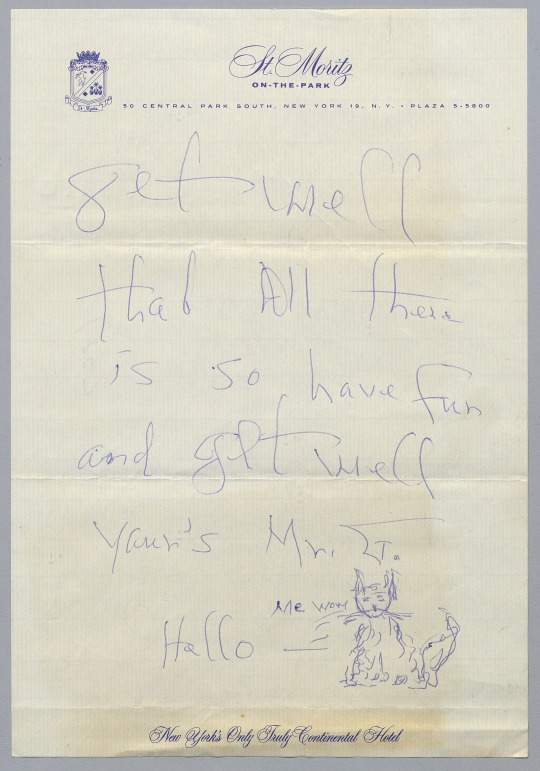 St. Moritz
ON-THE-PARK
50 CENTRAL PARK SOUTH, NEW YORK 19, N.Y. • PLAZA 5-5800
get well
that All there
is so have fun
and get well
Your's Mr. T.
Me wow
Hallo —
New York's Only Truly Continental Hotel